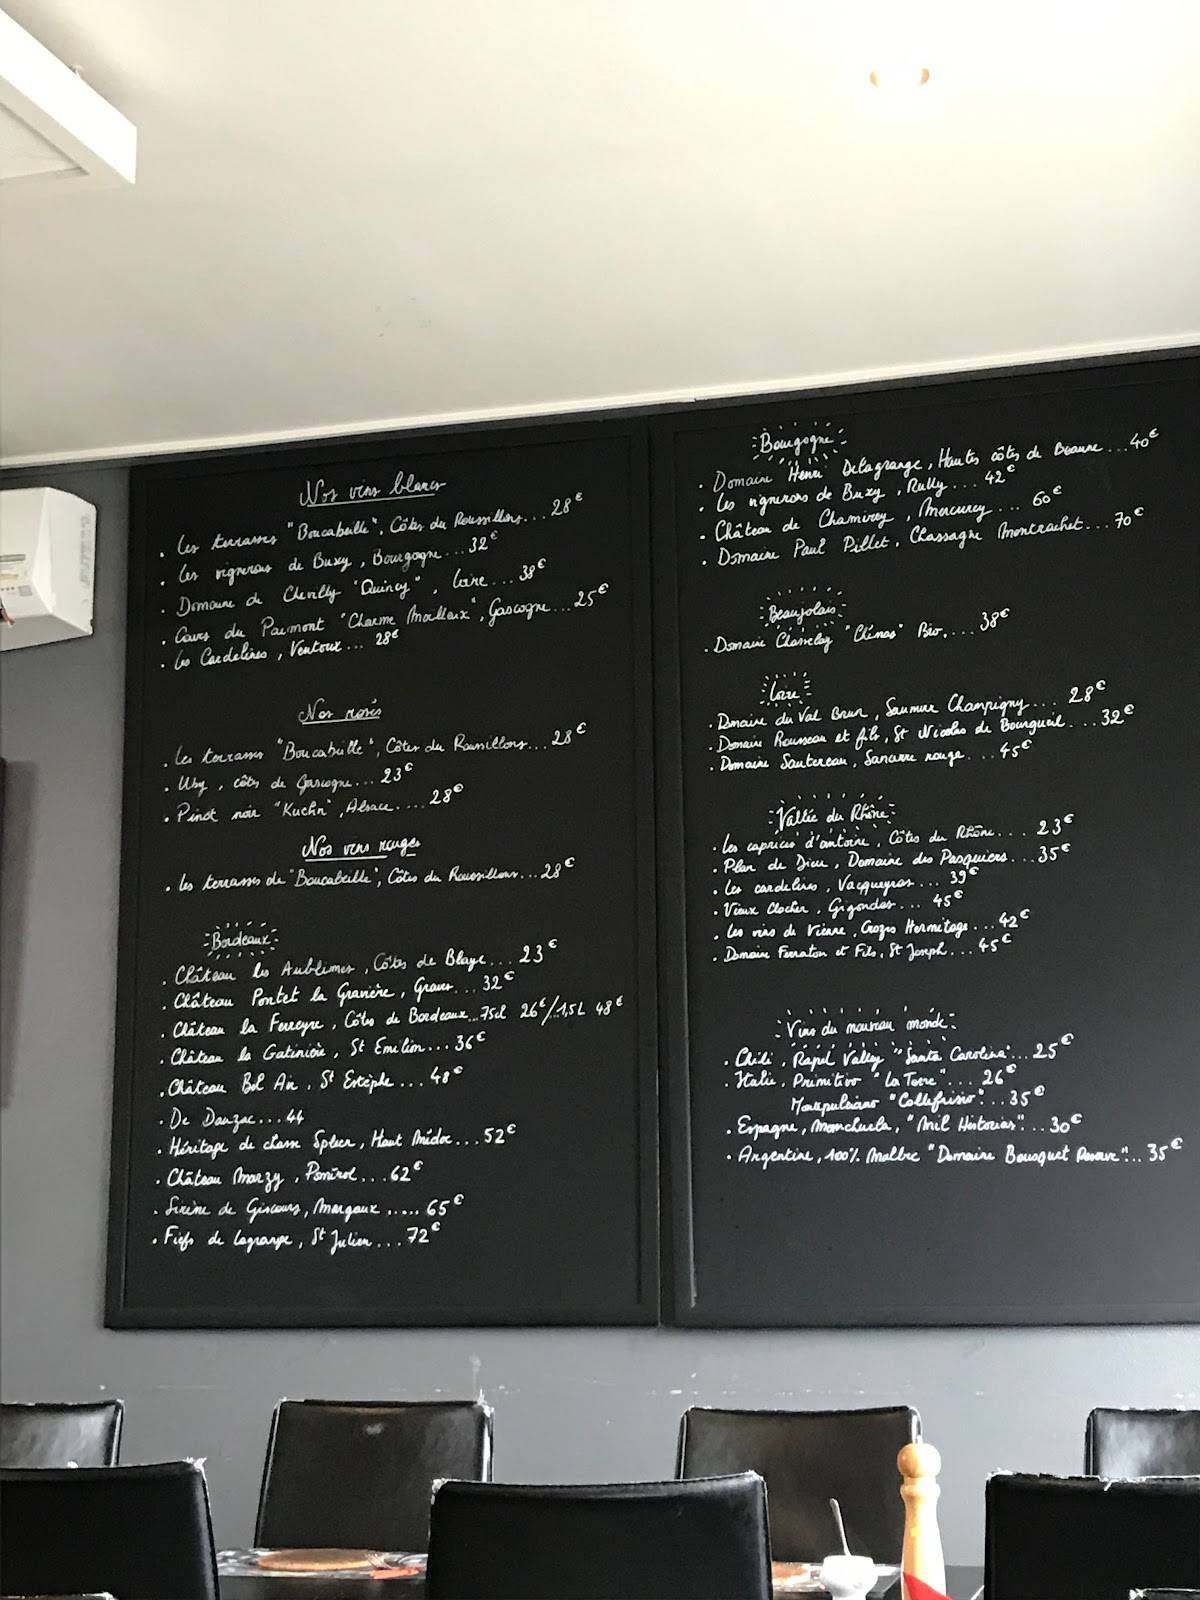 Nos vins blancs
. Les terrasses "Boucabeille", Côtes du Roussillons... 28€
. Les vignerons de Buxy, Bourgogne... 32€
. Domaine de Chevilly "Quincy", Loire... 38€
. Caves du Paumont "Charme Moelleux", Gascogne... 25€
. Les Cardelines, Ventoux... 28€
Nos rosés
. Les terrasses "Boucabeille", Côtes du Roussillons... 28€
. Uby, côtes de Gascogne... 23€
. Pinot noir "Kuehn", Alsace.... 28€
Nos vins rouges
. Les terrasses de "Boucabeille", Côtes du Roussillons... 28€
Bordeaux
. Château les Aublimes, Côtes de Blaye... 23€
. Château Pontet la Gravière, Graves... 32€
. Château la Ferreyre, Côtes de Bordeaux...75cl 26€/...1,5L 48€
. Château la Gatinière, St Emilion... 36€
. Château Bel Air, St Estèphe... 48€
. De Dauzac... 44
. Héritage de chasse Spleen, Haut Médoc... 52€
. Château Marzy, Pomérol... 62€
. Sirène de Giscours, Margaux ..... 65€
. Fiefs de Lagrange, St Julien... 72€
Bourgogne
. Domaine Henri Delagrange, Hautes côtes de Beaune... 40€
. Les vignerons de Buxy, Rully... 42€
. Château de Chamirey, Mercurey... 60€
. Domaine Paul Pillet, Chassagne Montrachet... 70€
Beaujolais
. Domaine Chasselay "Chénas" Bio.... 38€
Loire
. Domaine du Val Brun, Saumur Champigny.... 28€
. Domaine Rousseau et fils, St Nicolas de Bourgueil.... 32€
. Domaine Sautereau, Sancerre rouge... 45€
Vallée du Rhône
. Les caprices d'antoine, Côtes du Rhône.... 23€
. Plan de Dieu, Domaine des Pasquiers... 35€
. Les cardelines, Vacqueyras... 39€
. Vieux Clocher, Gigondas... 45€
. Les vins de Vienne, Crozes Hermitage... 42€
. Domaine Ferraton et Fils, St Joseph... 45€
Vins du nouveau monde
. Chili, Rapel Valley "Santa Carolina"... 25€
. Italie, Primitivo "La Torre"... 26€
Montepulciano "Collefrisio"... 35€
. Espagne, Manchuela, "Mil Historias"... 30€
. Argentine, 100% Malbec "Domaine Bousquet Reserve"... 35€